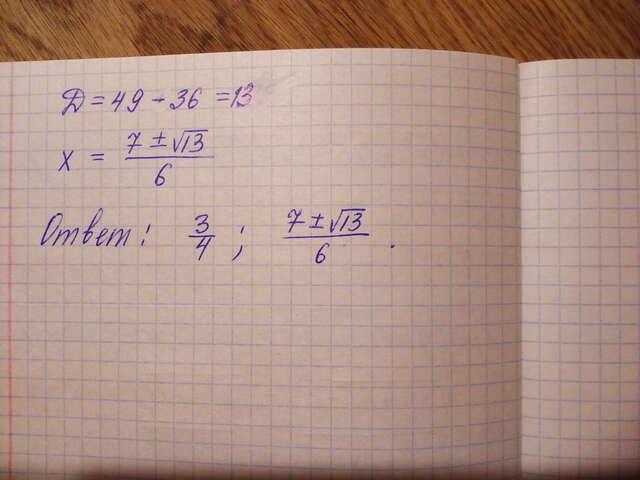 Д = 49 - 36 = 13
x = (7 ± √13)/6
Ответ: 3/4 ; (7 ± √13)/6 .